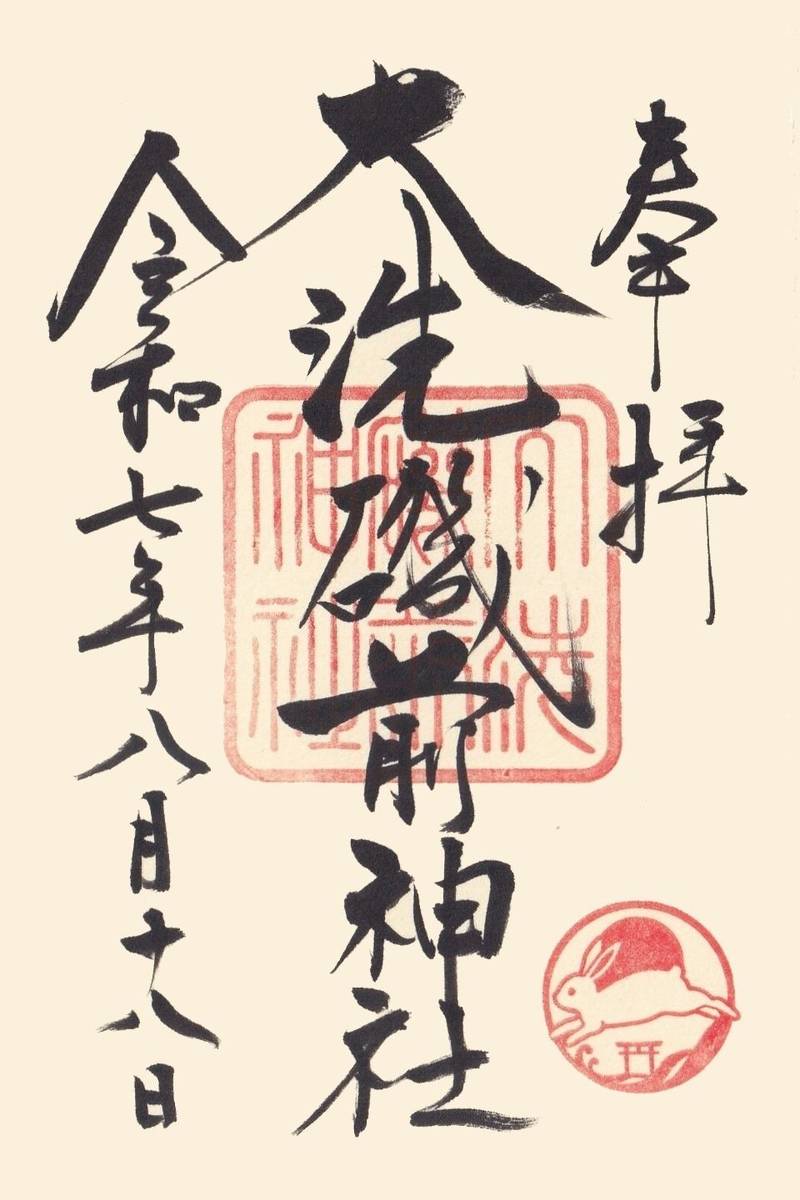 奉拝
大洗磯前神社
令和七年八月十八日
大洗
磯前
神社